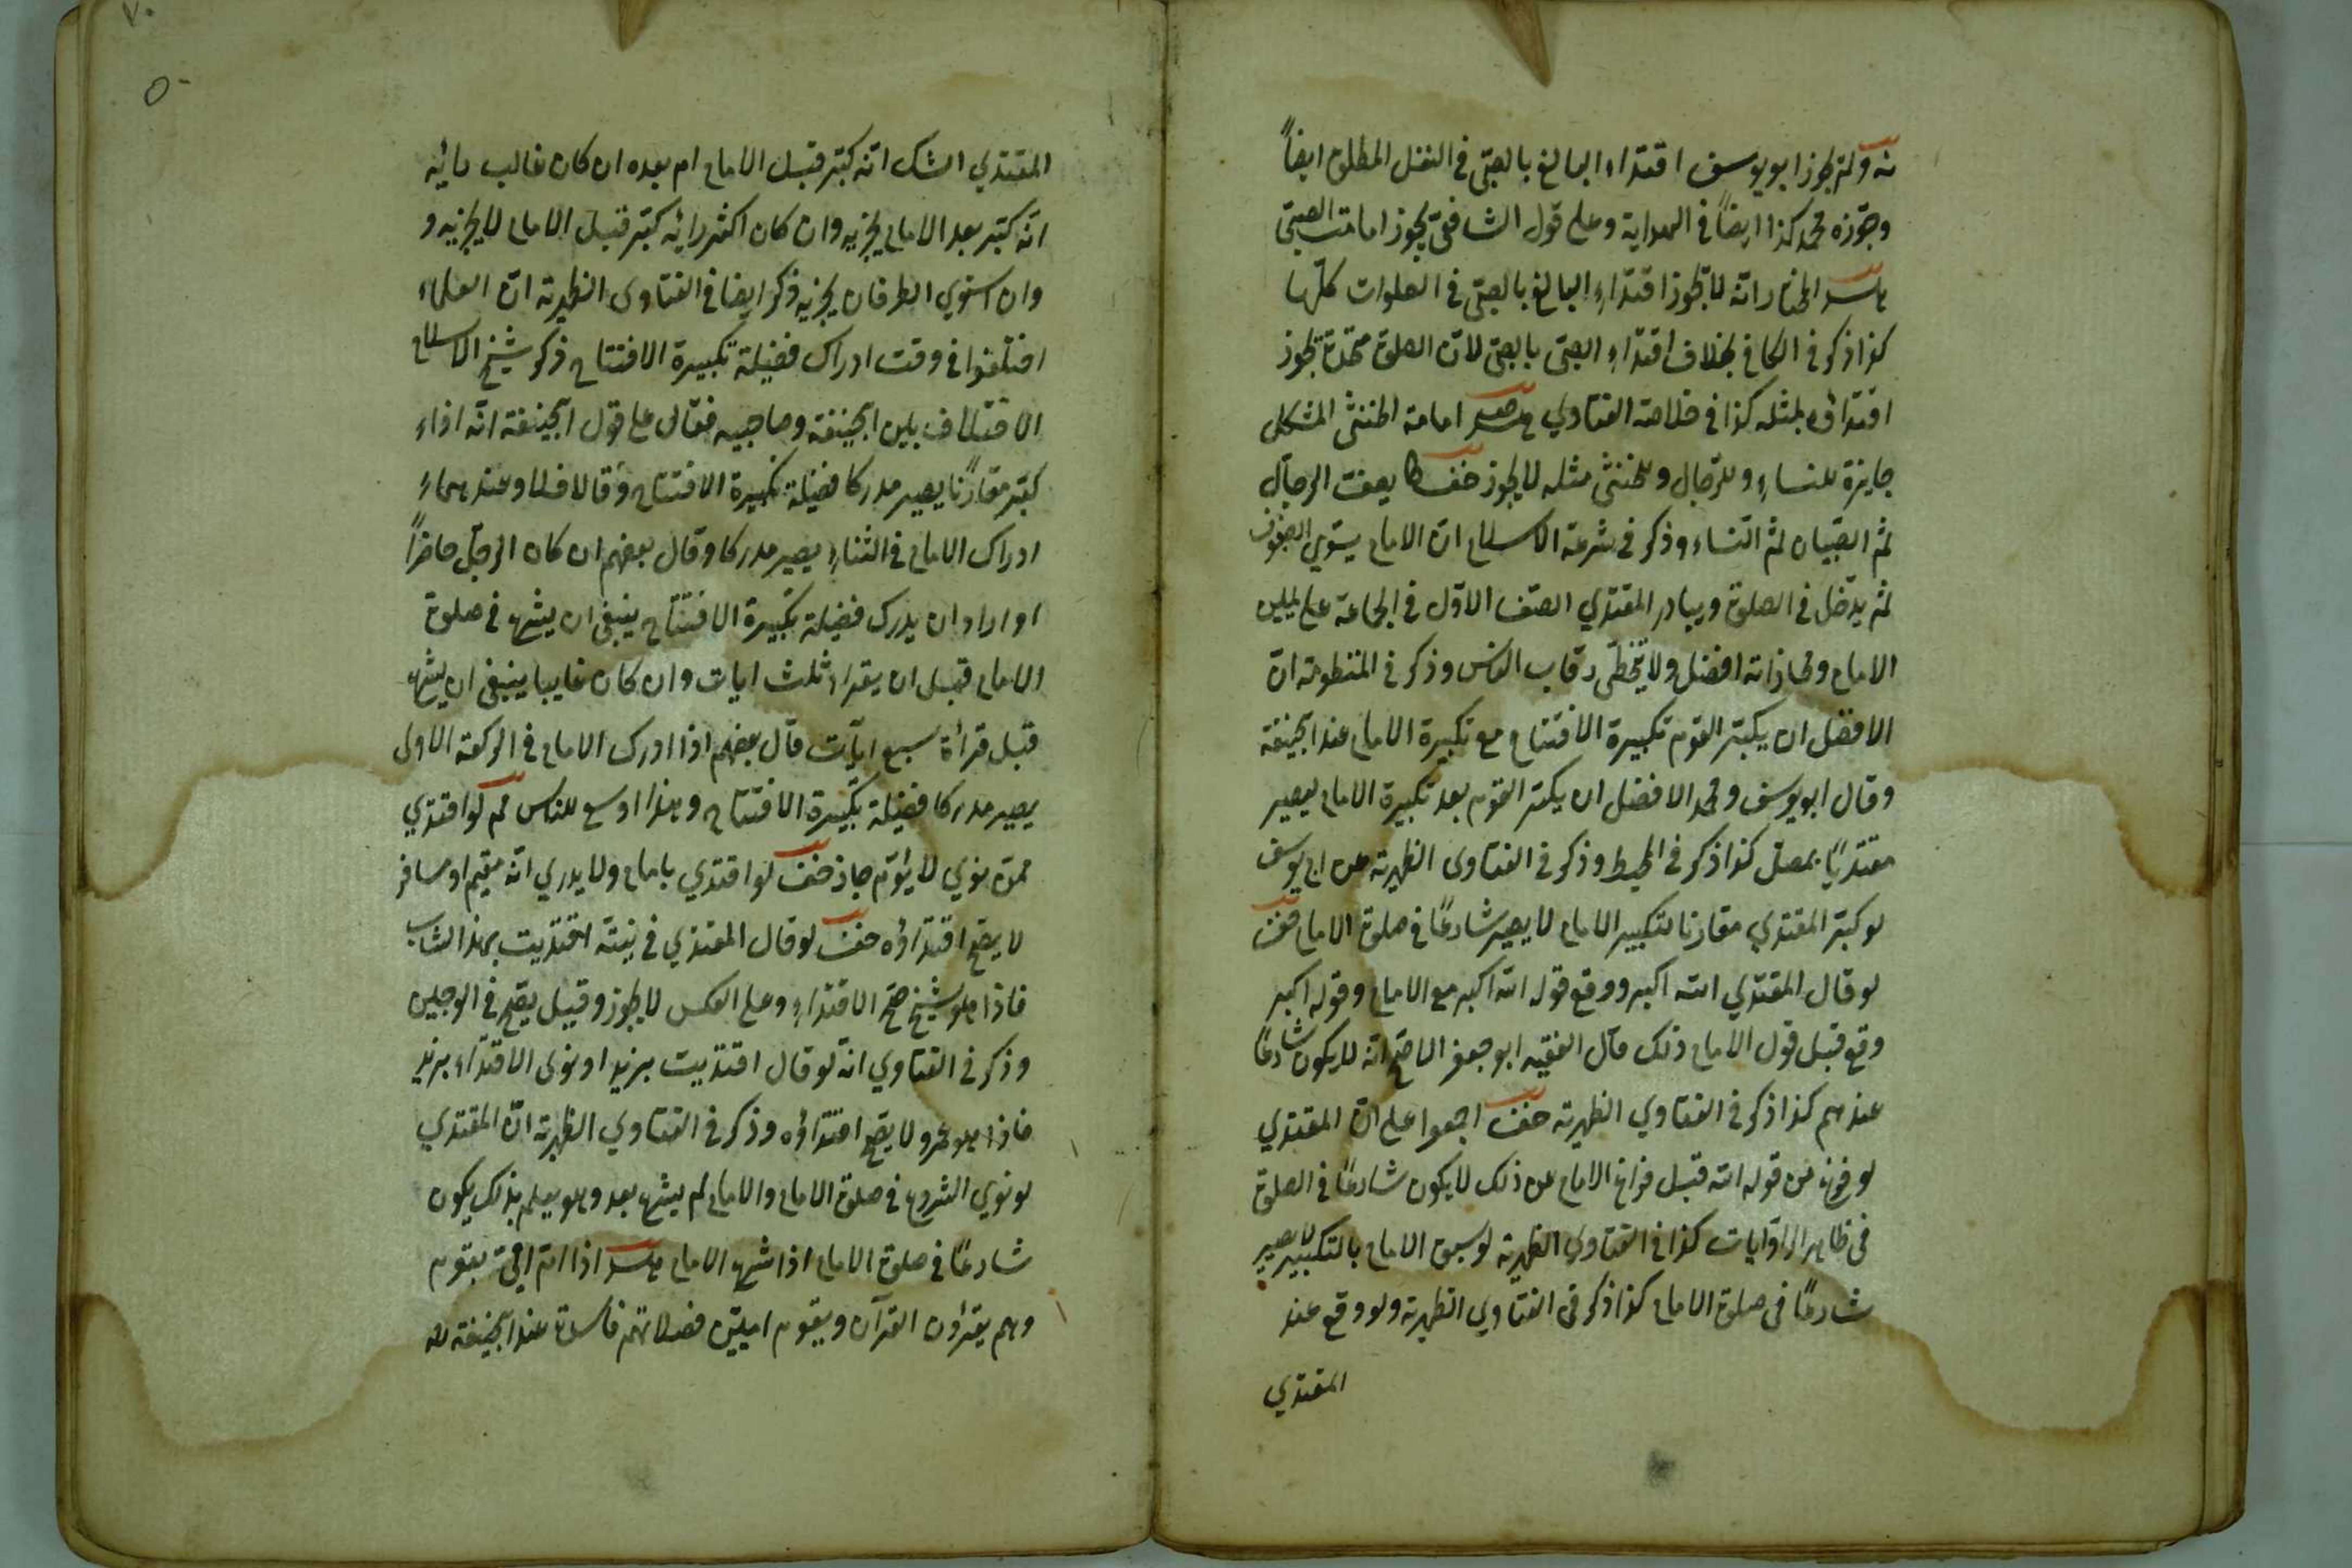 ولم يجوز ابو يوسف اقتداء البالغ بالصبي في النفل المطلق ايضاً
وجوّزه محمد كذا ايضاً في الهداية وعلى قول الشافعي يجوز امامت الصبي
المختار انه لا يجوز اقتداء البالغ بالصبي في الصلوات كلّها
كذا ذكر في الكافي بخلاف اقتداء الصبي بالصبي لان الصلوة متحدة يجوز
اقتداؤه بمثله كذا في خلاصة الفتاوي امامة الخنثى المشكل
جايزة للنساء وللرّجال وللخنثى مثله لا يجوز حف يصف الرجال
ثم الصّبيان ثم النساء وذكر في شرعة الاسلام ان الامام يستوي الصفوف
ثم يدخل في الصلوة ويبادر المقتدي الصف الاوّل في الجماعة على يمين
الامام ومحاذاته افضل ولا يتخطّى رقاب الناس وذكر في المنظومة انّ
الافضل ان يكبّر القوم تكبيرة الافتتاح مع تكبيرة الامام عند ابحنيفة
وقال ابو يوسف ومحمد الافضل ان يكبّر القوم بعد تكبيرة الامام ليصير
مقتديًا بمصلّ كذا ذكر في المحيط وذكر في الفتاوى الظهيرية عن ابي يوسف
لو كبّر المقتدي مقارنا لتكبير الامام لا يصير شارعًا في صلوة الامام حف
لو قال المقتدي الله اكبر ووقع قوله الله اكبر مع الامام وقوله اكبر
وقع قبل قول الامام ذلك قال الفقيه ابو جعفر الاصح انّه لا يكون شارعًا
عندهم كذا ذكر في الفتاوي الظهيرية حف اجمعوا على انّ المقتدي
لو فرغ من قوله الله قبل فراغ الامام عن ذلك لا يكون شارعًا في الصلوة
في ظاهر الرّوايات كذا في الفتاوي الظهيرية لو سبق الامام بالتكبير لا يصير
شارعًا في صلوة الامام كذا ذكر في الفتاوي الظهيرية ولو وقع عند
المقتدي
٥٠
المقتدي الشك انّه كبّر قبل الامام ام بعده ان كان غالب رائه
انّه كبّر بعد الامام يجزيه وان كان اكثر رائه كبّر قبل الامام لا يجزيه و
وان استوي الطرفان يجزيه ذكر ايضا في الفتاوى الظهيرية انّ العلماء
اختلفوا في وقت ادراك فضيلة تكبيرة الافتتاح ذكر شيخ الاسلام
الاختلاف بين ابحنيفة وصاحبيه فقال على قول ابحنيفة انّه اذاء
كبّر مقارنًا يصير مدركا فضيلة تكبيرة الافتتاح وقالا فلا وعندهماء
ادراك الامام في الثناء يصير مدركا وقال بعضهم ان كان الرجل حاضراً
او اراد ان يدرك فضيلة تكبيرة الافتتاح ينبغي ان يشرع في صلوة
الامام قبل ان يقراء ثلث ايات وان كان غايبا ينبغي ان يشرع
قبل قراءة سبع ايات قال بعضهم اذا ادرك الامام في الركعة الاولى
يصير مدركا فضيلة تكبيرة الافتتاح وهذا اوسع للناس لو اقتدي
ممّن نوي لا يؤم جاز حف لو اقتدي بامام ولا يدري انّه مقيم او مسافر
لا يصح اقتداؤه حف لو قال المقتدي في نيته اقتديت بهذا الشاب
فاذا هو شيخ صحّ الاقتداء وعلى العكس لا يجوز وقيل يصح في الوجهين
وذكر في الفتاوي انّه لو قال اقتديت بزيد او نوى الاقتداء بزيد
فاذا هو عمرو لا يصح اقتداؤه وذكر في الفتاوي الظهيرية انّ المقتدي
لو نوي الشروع في صلوة الامام والامام لم يشرع بعد وهو يعلم بذلك يكون
شارعًا في صلوة الامام اذا شرع الامام اذا امّ اميّ بقوم
وهم يقرؤن القرآن وبقوم اميّين فصلاتهم فاسدة عند ابحنيفة